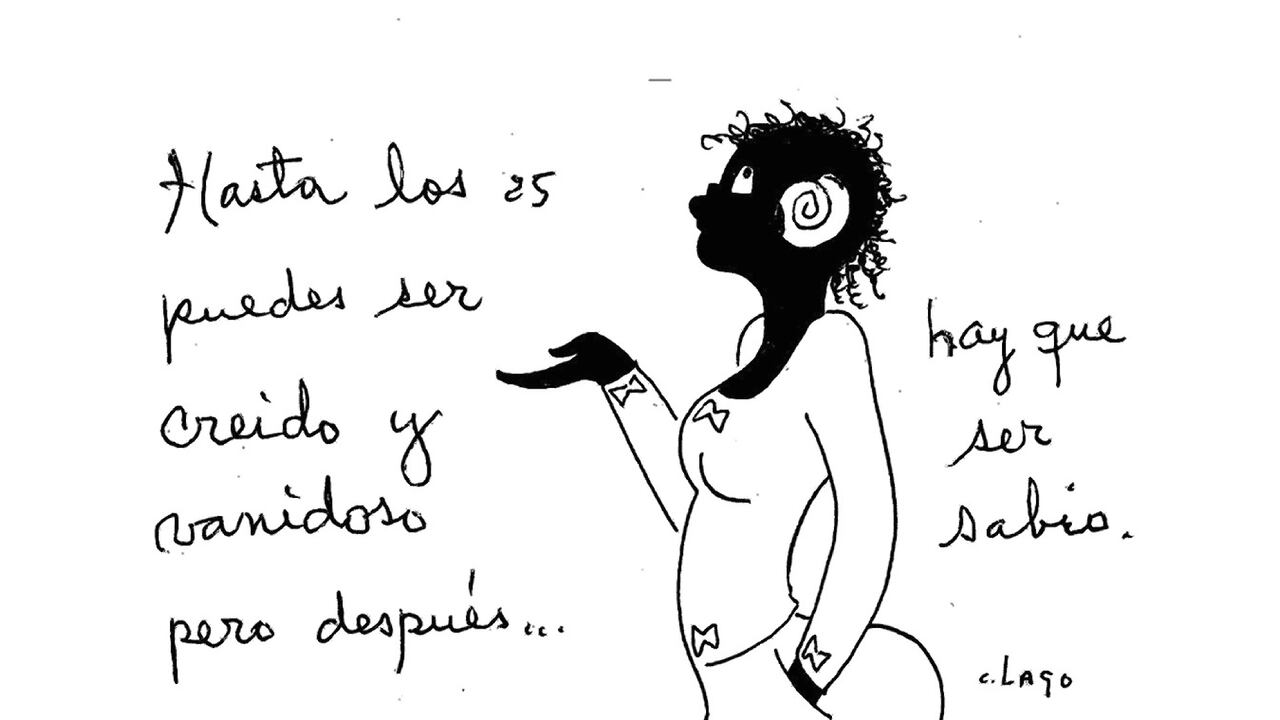 Hasta los 25
puedes ser
creido y
vanidoso
pero después...
hay que
ser
sabio.
c. LAGO